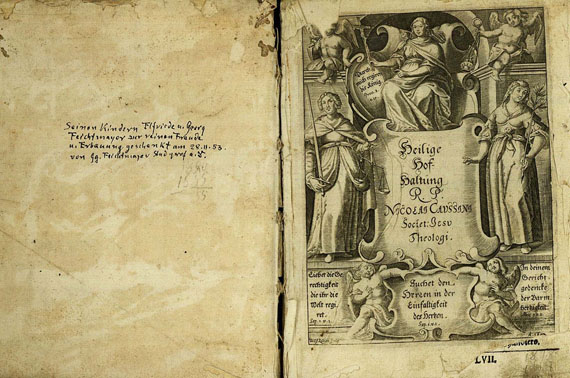 Seinen Kindern Elfriede u. Georg
Feichtmayer zur reinen Freude
u. Erbauung geschenkt am 28.11.53.
von Gg. Feichtmayer
Durch mich
regieren
die König
Heilige
Hof-
Haltung
R. P.
NICOLAI CAVSSINI
Societ: Jesu
Theologi.
Liebet die Ge
rechtigkeit
die ihr die
Welt regi
ret.
Sap. 1. v. 1.
Suchet den
Herren in der
Einfaltigkeit
des Herten.
Sap. 1. v. 1.
In deinem
Gericht
gedencke
der Barm
hertzigkeit.
LVII.